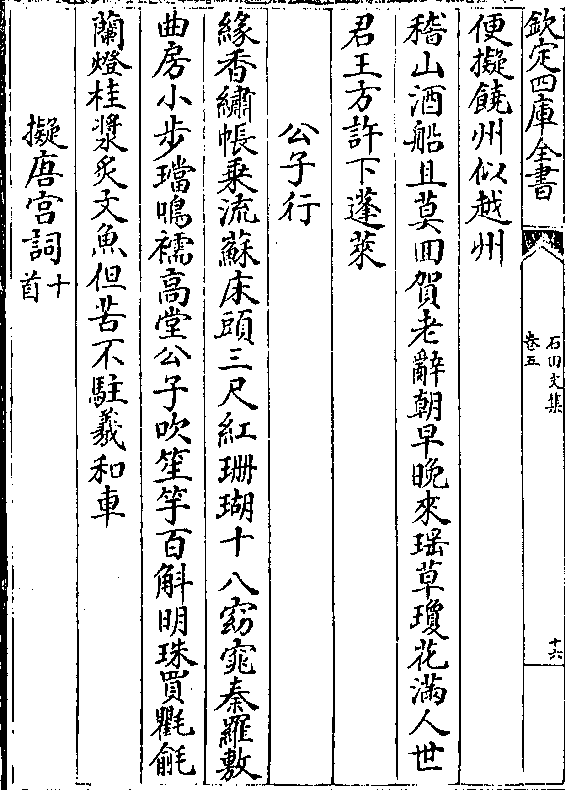 欽定四庫全書
石田文集
卷五
十六
便擬饒州似越州
稽山酒船且莫回賀老辭朝早晚來瑶草瓊花滿人世
君王方許下蓬萊
公子行
緣香繡帳乗流蘇床頭三尺紅珊瑚十八窈窕秦羅敷
曲房小步璫鳴襦高堂公子吹笙竽百斛明珠買氍毹
蘭燈桂漿炙文魚但苦不駐羲和車
擬唐宫詞十首